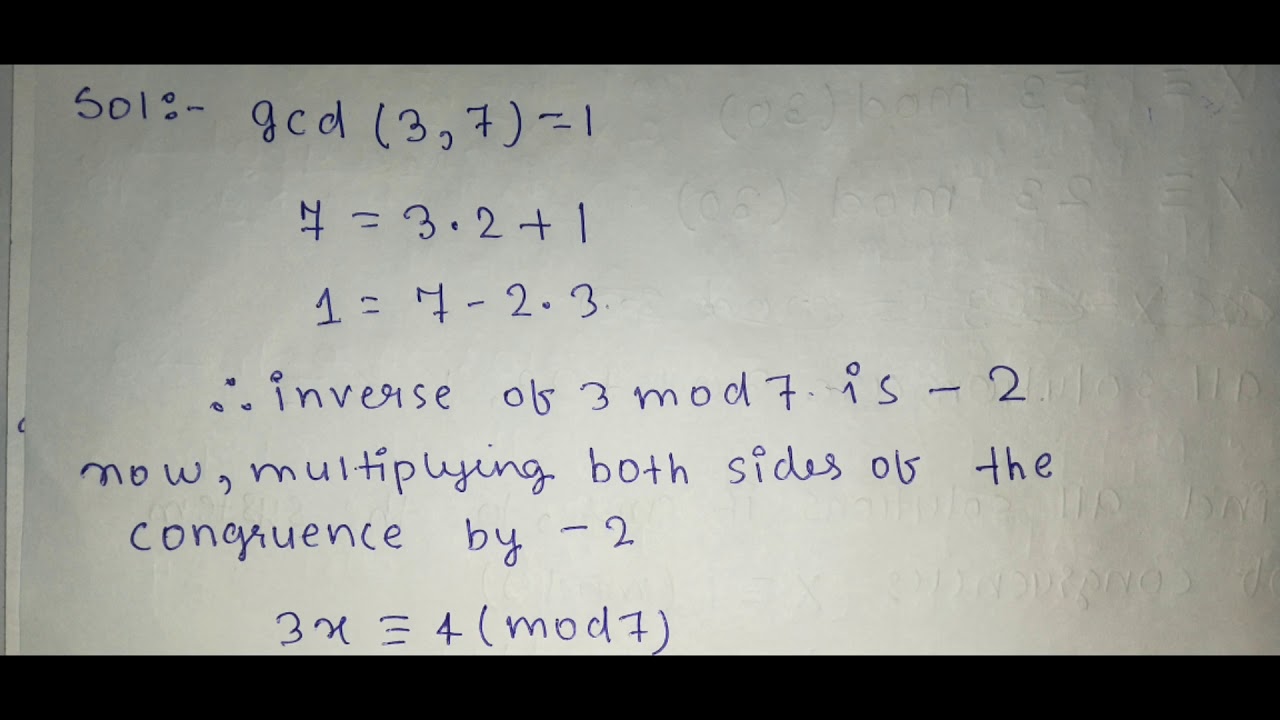 Sol:- gcd (3,7)=1
7 = 3·2+1
1 = 7-2·3
∴ inverse of 3 mod 7 is -2
now, multiplying both sides of the
congruence by -2
3x ≡ 4 (mod 7)